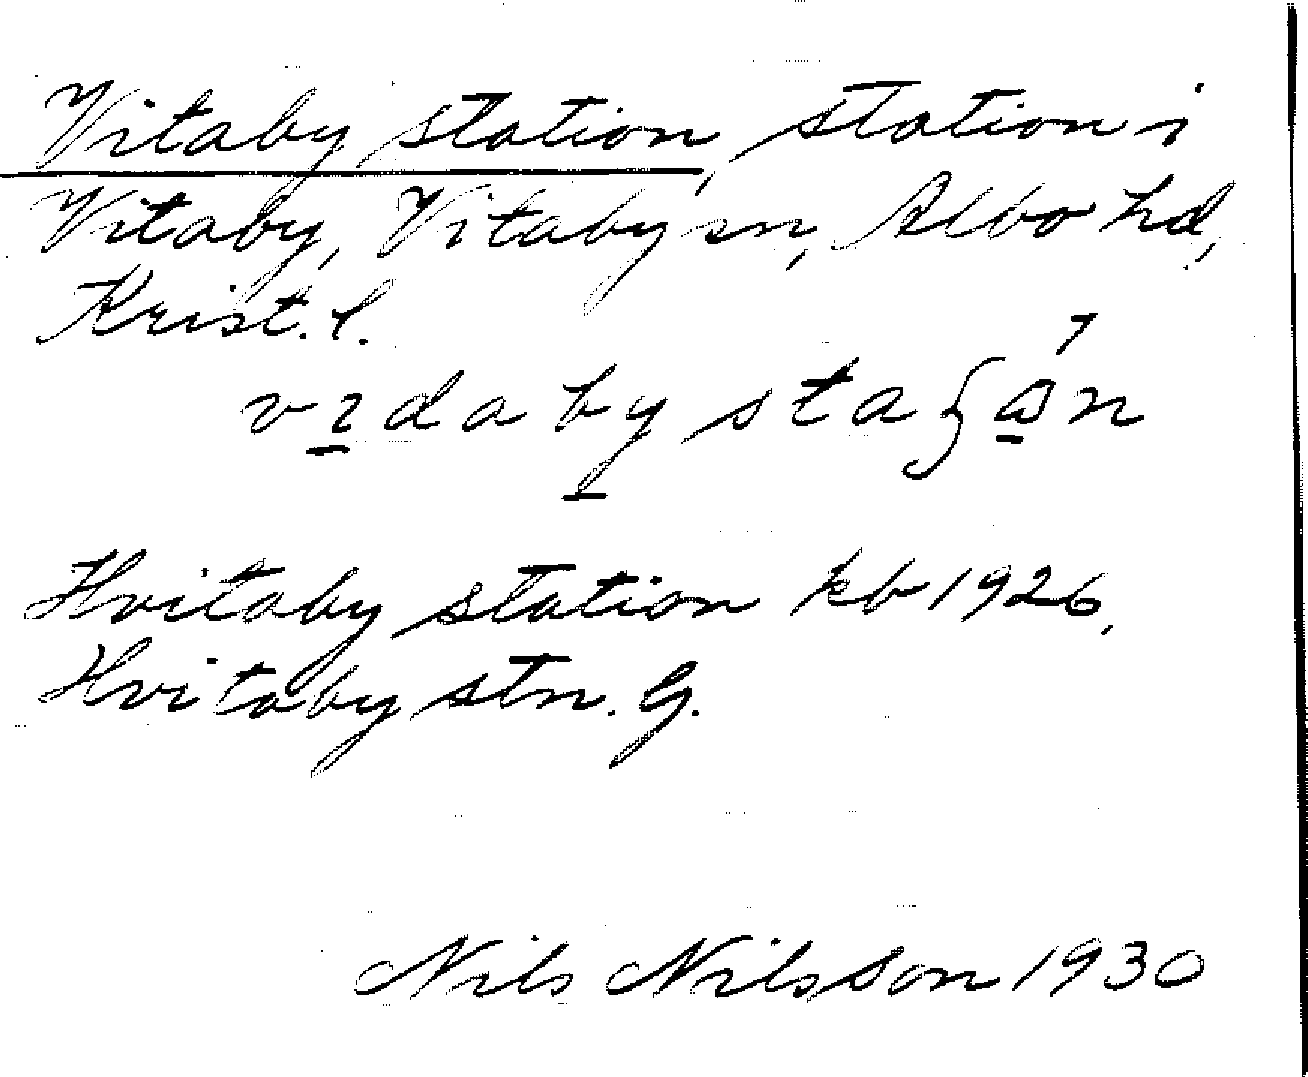 Vitaby station, station i
Vitaby, Vitaby sn, Albo hd,
Krist. l.
vıdaby
Hvitaby station kb 1926,
Hvitaby stn. G.
Nils Nilsson 1930